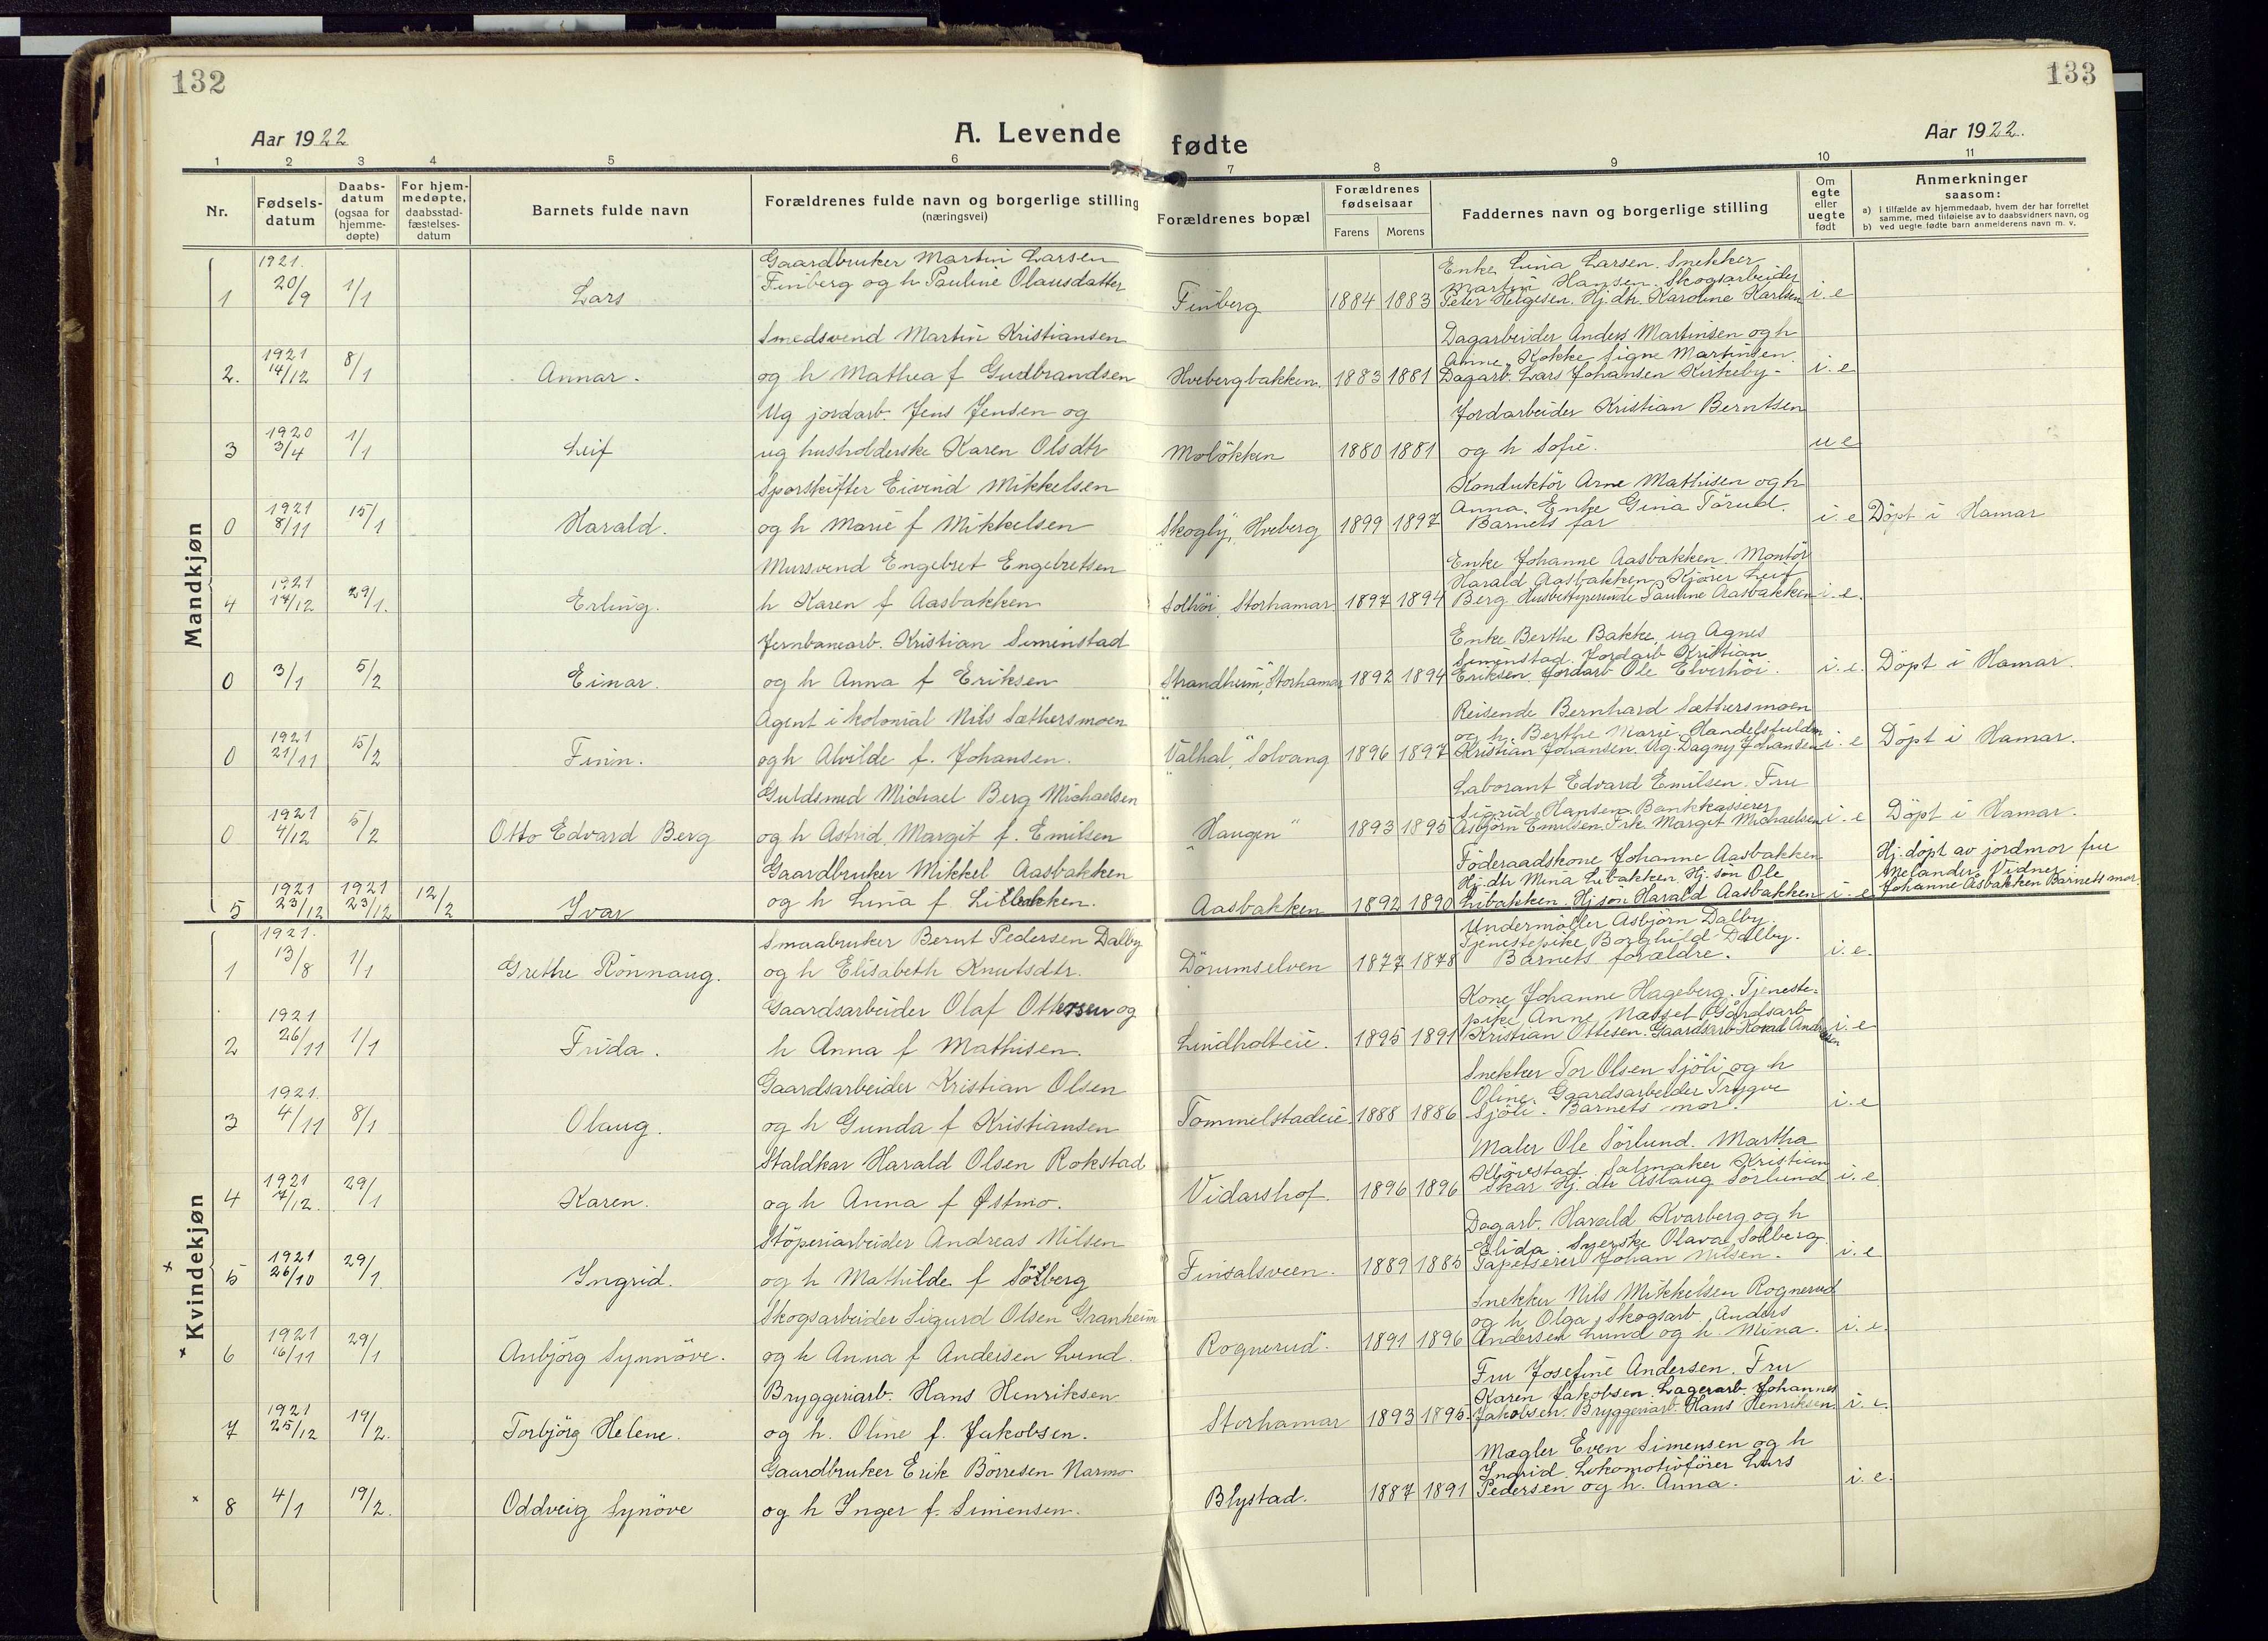 132
133
Aar 1922
A. Levende fødte
Aar 1922.
1 2 3 4 5 6 7 8 9 10 11
Nr.
Fødsels-
datum
Daabs-
datum
(ogsaa for
hjemme-
døpte)
For hjem-
medøpte,
daabsstad-
fæstelses-
datum
Barnets fulde navn
Forældrenes fulde navn og borgerlige stilling
(næringsvei)
Forældrenes bopæl
Forældrenes
fødselsaar
Farens Morens
Faddernes navn og borgerlige stilling
Om
egte
eller
uegte
født
Anmerkninger
saasom:
a) i tilfælde av hjemmedaab, hvem der har forrettet
samme, med tilføielse av to daabsvidners navn, og
b) ved uegte fødte barn anmelderens navn m. v.
Mandkjøn
1 1921. 20/9 1/1 Lars
Gaardbruker Martin Larsen
Finberg og h Pauline Olausdatter
Finberg 1884 1883
Enke Lina Larsen. Snekker
Martin Hansen. Skogsarbeider
Peter Helgesen. Hj. dtr. Karoline Karlsen
i. e
2. 1921 14/12 8/1 Annar.
Smedsvend Martin Kristiansen
og h Mathea f Gudbrandsen
Hvebergbakken. 1883 1881
Dagarbeider Anders Martinsen og h
Anne, Kokke Signe Martinsen.
Dagarb. Lars Johansen Kirkeby-
i. e
3 1920 3/4 1/1 Leif
Ug jordarb. Jens Jensen og
ug husholderske Karen Olsdtr
Moløkken 1880 1881
Jordarbeider Kristian Berntsen
og h Sofie.
u e
0 1921 8/11 15/1 Harald.
Sporskifter Eivind Mikkelsen
og h Marie f Mikkelsen
"Skogly", Hveberg 1899 1897
Konduktör Arne Mathisen og h
Anna. Enke Gina Törud.
Barnets far
i. e Döpt i Hamar
4 1921 17/12 29/1. Erling.
Mursvend Engebret Engebretsen
h Karen f Aasbakken
Solhöi, Storhamar 1897 1894
Enke Johanne Aasbakken. Montör
Harald Aasbakken, Kjörer Leif
Berg Husbestyrerinde Pauline Aasbakken
i. e.
0 3/1 5/2 Eimar.
Jernbanearb. Kristian Simenstad
og h Anna f Eriksen
"Strandheim", Storhamar 1892 1894
Enke Berthe Bakke, ug Agnes
Simenstad. Jordarb Kristian
Eriksen. Jordarb Ole Elverhöi.
i. e. Döpt i Hamar.
0 1921 21/11 15/2 Finn.
Agent i kolonial Nils Sæthersmoen
og h Alvilde f. Johansen.
"Valhal," Solvang 1896 1897
Reisende Bernhard Sæthersmoen
og h. Berthe Marie. Handelsfuldm
Kristian Johansen. Ug. Dagny Johansen
i. e Döpt i Hamar.
0 1921 4/12 5/2 Otto Edvard Berg
Guldsmed Michael Berg Michaelsen
og h Astrid Margit f. Emilsen
"Haugen" 1893 1895
Laborant Edvard Emilsen. Fru
Sigrid Hansen. Bankkasserer
Asbjörn Emilsen. Frk. Margit Michaelsen
i. e Döpt i Hamar.
5 1921 23/12 1921 23/12 12/2 Ivar
Gaardbruker Mikkel Aasbakken
og h Lina f Lilbakken.
Aasbakken 1892 1890
Föderaadskone Johanne Aasbakken
Hj. dtr Mina Libakken. Hj. sön Ole
Libakken. Hj sön Harald Aasbakken
i. e
Hj. döpt av jordmor fru
Melander. Vidner:
Johanne Aasbakken Barnets mor.
Kvindekjøn
1 1921. 13/8 1/1 Grethe Rönnaug.
Smaabruker Bernt Pedersen Dalby
og h Elisabeth Knutsdtr.
Dörumselven 1877 1878
Undermöller Asbjörn Dalby.
Tjenestepike Borghild Dalby.
Barnets forældre.
i. e.
2 1921 26/11 1/1 Frida.
Gaardsarbeider Olaf Ottersen og
h Anna f Mathisen.
Lindholteie. 1895 1891
Kone Johanne Hageberg. Tjeneste-
pike Anne Næsset Gårdsarb
Kristian Ottesen. Gaardsarb Konrad Andersen
i. e
3 1921. 4/11 8/1 Olaug.
Gaardsarbeider Kristian Olsen
og h Gunda f Kristiansen
Tommelstadeie 1888 1886
Snekker Tor Olsen Sjöli og h
Oline. Gaardsarbeider Trygve
Sjöli. Barnets mor.
i. e
4 1921 7/12. 29/1 Karen.
Staldkar Harald Olsen Rokstad
og h Anna f Østmo.
Vidarshof. 1896 1896
Maler Ole Sörlund. Martha
Klövstad. Salmaker Kristian
Skar Hj. dtr Aslaug Sörlund
i. e.
x 5 1921 26/10 29/1. Ingrid.
Støperiarbeider Andreas Nilsen
og h Mathilde f Solberg
Finsalsveen. 1889 1885
Dagarb. Harald Kvarberg og h
Elida. Syerske Olava Solberg
Tapetserer Johan Nilsen.
i. e
x 6 1921 16/11 29/1 Anbjörg Synnöve.
Skogsarbeider Sigurd Olsen Granheim
og h Anna f Andersen Lund.
Rognerud. 1891 1896
Snekker Nils Mikkelsen Rognerud
og h Olga, Skogsarb. Anders
Andersen Lund og h. Mina.
i. e.
7 1921 25/12 19/2. Torbjörg Helene.
Bryggeriarb. Hans Henriksen
og h. Oline f. Jakobsen.
Storhamar 1893 1895.
Fru Josefine Andersen. Fru
Karen Jakobsen. Lagerarb. Johannes
Jakobsen. Bryggeriarb. Hans Henriksen.
i. e.
x 8 4/1 19/2. Oddveig Synöve
Gaardbruker Erik Börresen Narmo
og h Inger f. Simensen.
Blystad. 1887 1891
Mægler Even Simensen og h
Ingrid. Lokomotivförer Lars
Pedersen og h. Anna.
i. e.